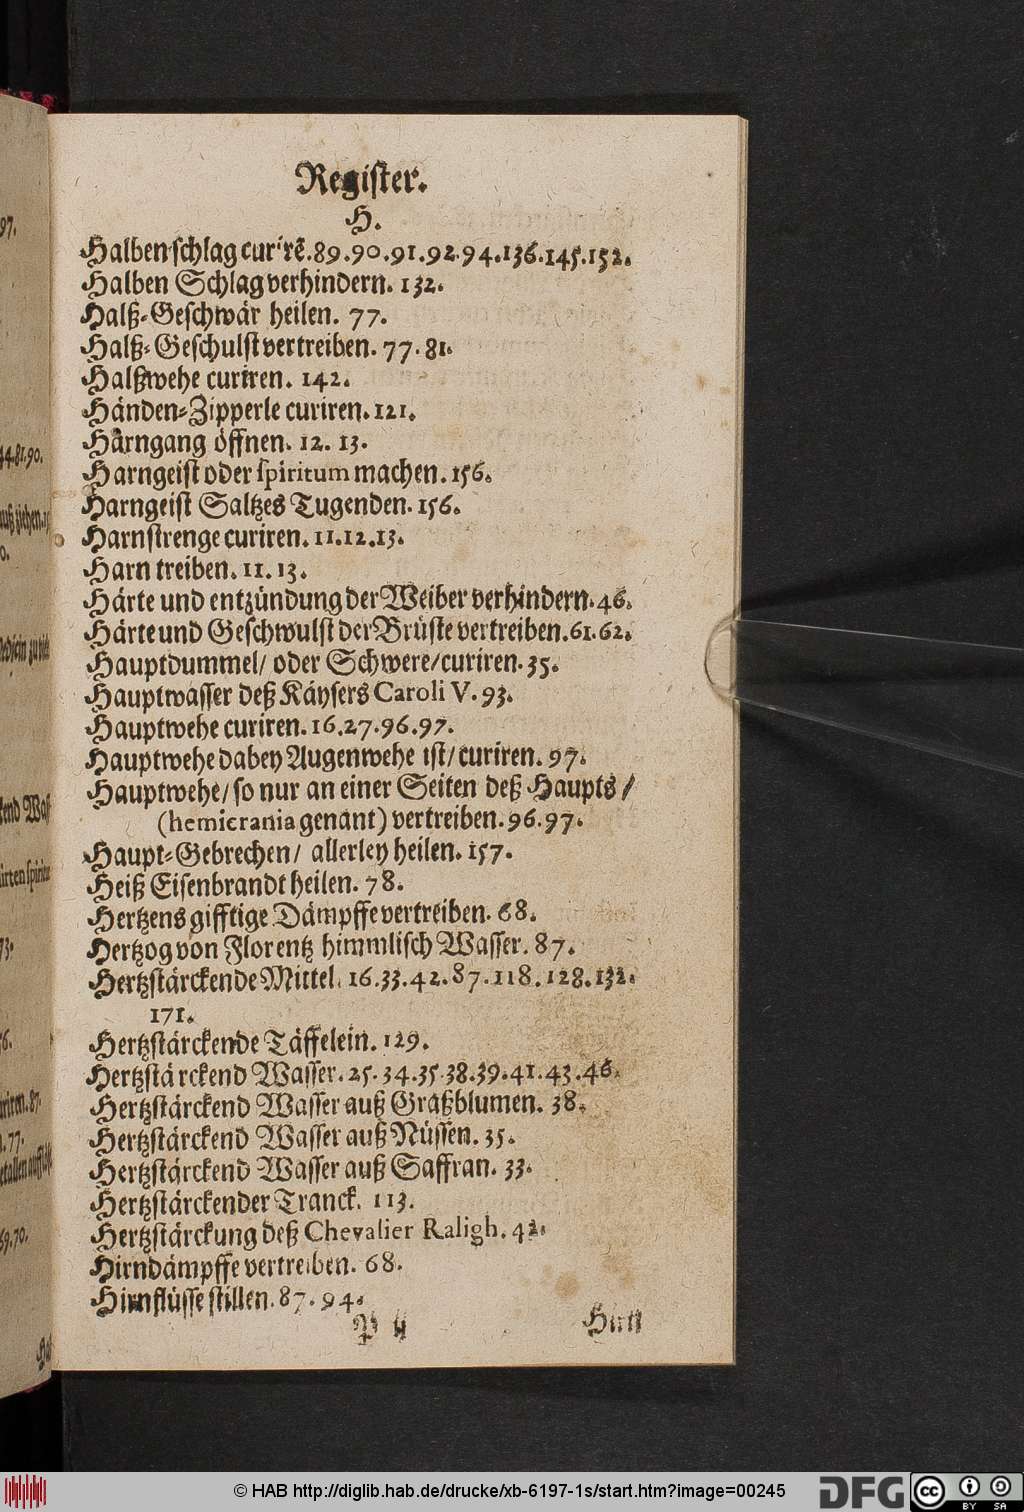 Register.
H.
Halben schlag curirē. 89. 90. 91. 92. 94. 136. 145. 152.
Halben Schlag verhindern. 132.
Halß-Geschwär heilen. 77.
Halß-Geschulst vertreiben. 77. 81.
Halßwehe curiren. 142.
Händen-Zipperle curiren. 121.
Härngang öffnen. 12. 13.
Harngeist oder spiritum machen. 156.
Harngeist Saltzes Tugenden. 156.
Harnstrenge curiren. 11. 12. 13.
Harn treiben. 11. 13.
Härte und entzündung der Weiber verhindern. 46.
Härte und Geschwulst der Brüste vertreiben. 61. 62.
Hauptdummel/ oder Schwere/ curiren. 35.
Hauptwasser deß Käysers Caroli V. 93.
Hauptwehe curiren. 16. 27. 96. 97.
Hauptwehe dabey Augenwehe ist/ curiren. 97.
Hauptwehe/ so nur an einer Seiten deß Haupts/
(hemicrania genant) vertreiben. 96. 97.
Haupt-Gebrechen/ allerley heilen. 157.
Heiß Eisenbrandt heilen. 78.
Hertzens gifftige Dämpffe vertreiben. 68.
Hertzog von Florentz himmlisch Wasser. 87.
Hertzstärckende Mittel. 16. 33. 42. 87. 118. 128. 132.
171.
Hertzstärckende Täffelein. 129.
Hertzstärckend Wasser. 25. 34. 35. 38. 39. 41. 43. 46.
Hertzstärckend Wasser auß Graßblumen. 38.
Hertzstärckend Wasser auß Nüssen. 35.
Hertzstärckend Wasser auß Saffran. 33.
Hertzstärckender Tranck. 113.
Hertzstärckung deß Chevalier Raligh. 42.
Hirndämpffe vertreiben. 68.
Hirnflüsse stillen. 87. 94.
P ij
97.
44. 81. 90.
73.
77.
69. 70.
© HAB http://diglib.hab.de/drucke/xb-6197-1s/start.htm?image=00245
DFG
cc
BY SA